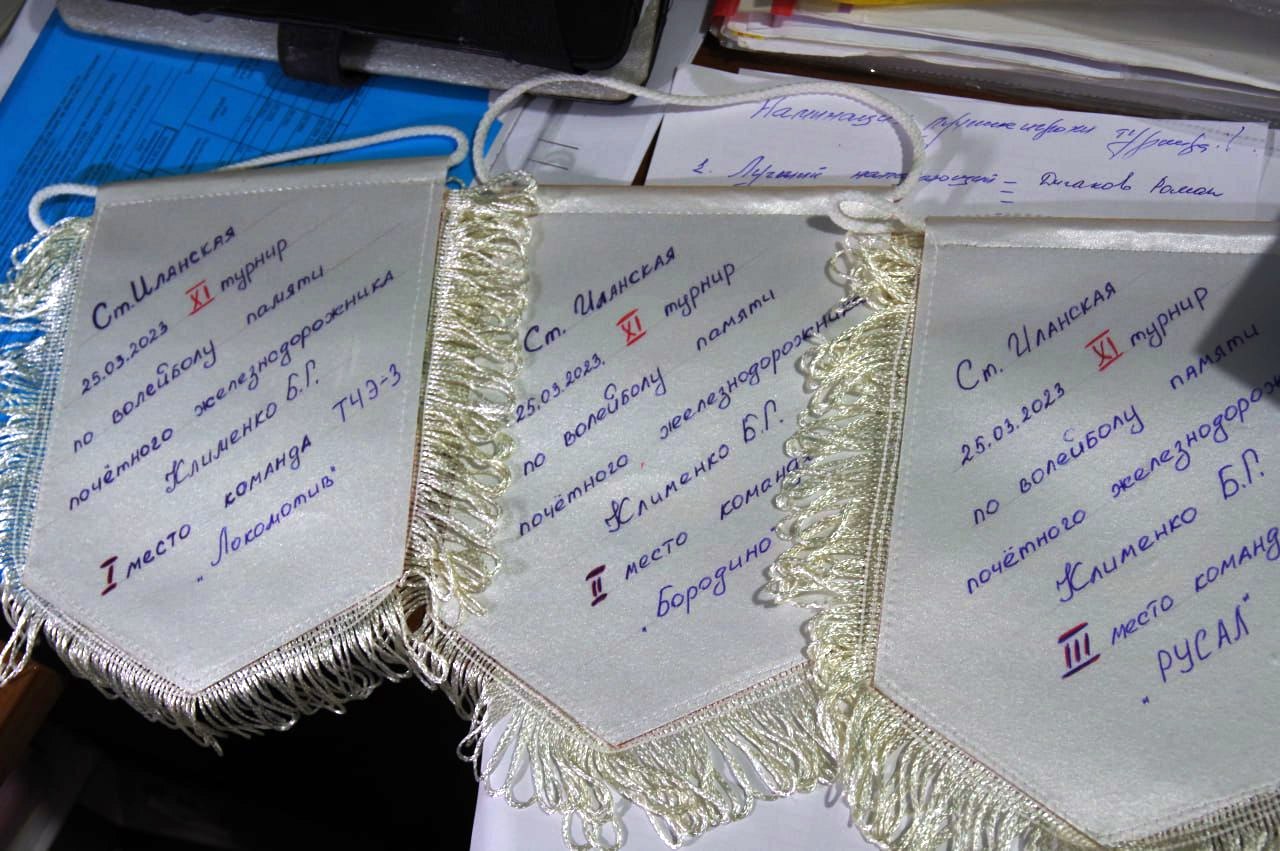 турнира!
1. Лучший нападающий = Дигаков Роман
Ст. Иланская
25.03.2023 XI турнир
по волейболу памяти
почётного железнодорожника
Клименко Б.Г.
I место команда ТЧЭ-3
"Локомотив"
Ст. Иланская
25.03.2023. XI турнир
по волейболу памяти
почётного железнодорожника
Клименко Б.Г.
II место команда
"Бородино"
Ст. Иланская
25.03.2023 XI турнир
по волейболу памяти
почётного железнодорож
Клименко Б.Г.
III место команд
"РУСАЛ"